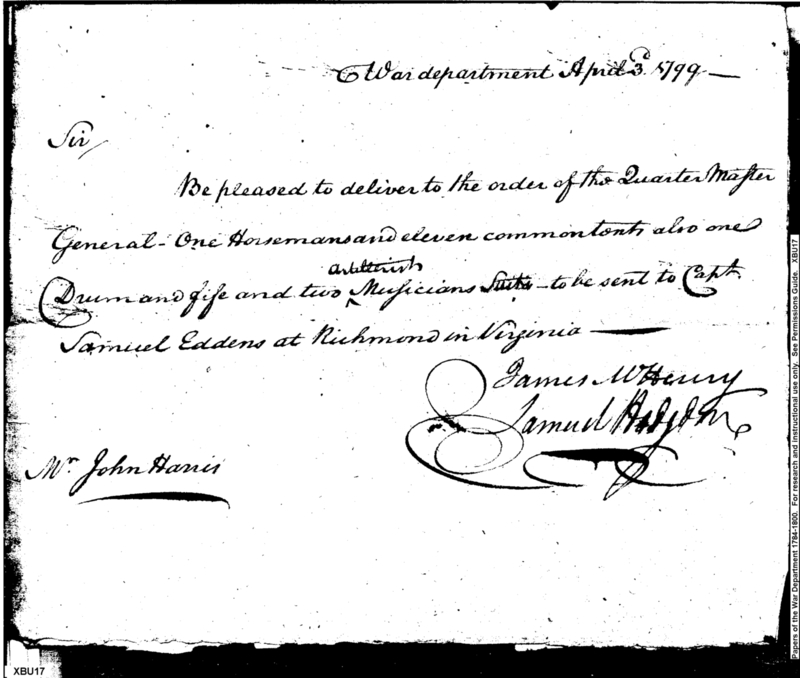 War department April 3d 1799 —
Sir
Be pleased to deliver to the order of the Quarter Master
General - One Horsemans and eleven common tents also one
artillerists
Drum and fife and two ^ Musicians Suits - to be sent to Capt.
Samuel Eddens at Richmond in Virginia —
James McHenry
Samuel Hodgdon
Mr. John Harris
XBU17
Papers of the War Department 1784-1800. For research and instructional use only. See Permissions Guide. XBU17